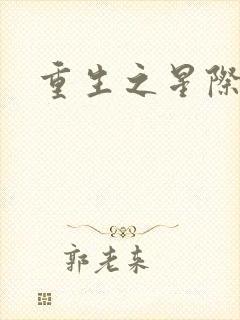 重生之星際
郭老来